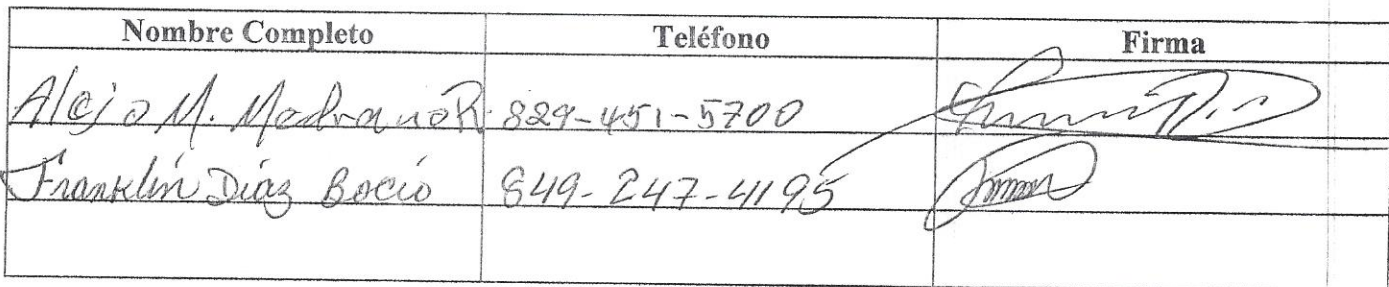 Nombre Completo Teléfono Firma
Alejo M. Medrano R. 829-451-5700
Franklin Díaz Bocio 849-247-4195